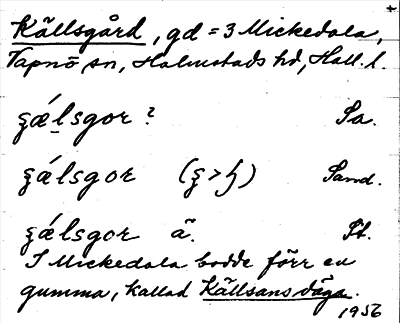 Källsgård, gd = 3 Mickedala,
Tapnö sn, Halmstads hd, Hall. l.
ʂǽlsgor ? Sa.
ʂǽlsgor (ʂ > ɧ) Sand.
ʂǽlsgor ã. St.
I Mickedala bodde förr en
gumma, kallad Källsans däga.
1956